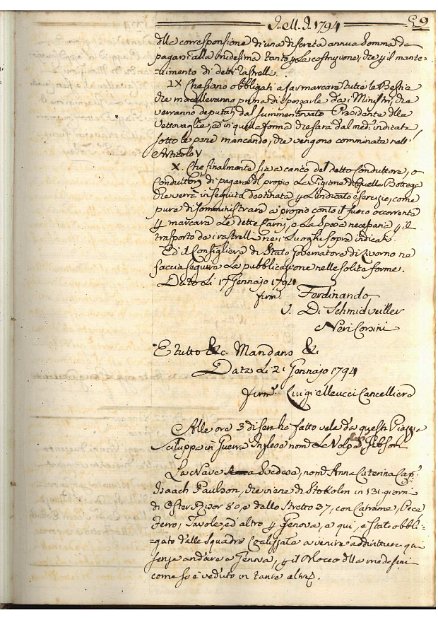 Nell' A. 1794
della corresponsione di una discreta annua somma da
pagarsi alla medesima tanto per la costruzione, che per il mante-
nimento di detti rastrelli.
IX. Che siano obbligati a far marcare tutte le Bestie
che macelleranno prima di esporle da i Ministri, che
verranno deputati dal summentovato Presidente delle
Vettovaglie, ed in quella forma che sarà dal med. indicata
sotto le pene mancando, che vengono comminate nell'
Articolo V
X. Che finalmente sia a carico del detto conduttore, o
conduttori di pagare di proprio la Pigione di quelle Botteghe
che verrà in seguito destinata per l'indicato esercizio, come
pure di somministrare a proprio conto il fuoco occorrente
per marcare le dette carni, e la spesa necessaria per il
trasporto da i rastrelli nei luoghi sopra indicati
Ed il Consigliere di Stato Governatore di Livorno ne
faccia seguire la pubblicazione nelle solite forme.
Dato li 17 Gennajo 1794
firm. Ferdinando
V. De Schmidveiller
Neri Corsini
E tutto &c. Mandans &
Dat. li 21 Gennajo 1794
firm. Luigi Cancelliere
Alle ore 3 di sera ha fatto vela da questa Piaggia
Sciluppa in Guerra Inglese nom. La Volpe
La Nave Svedese, nom. Anna Caterina, Cap.
Isaach Paulson, che viene di Stokolm in 131 giorni
di Elseneur 80, e dallo Stretto 37, con Catrame, Pece
Ferro, Tavole, ed altro per Genova, e qui è stato obbli-
gato dalle Squadre a venire addirittura qua
senza andare a Genova, per il Blocco della medesima
come si è veduto in tante altre.